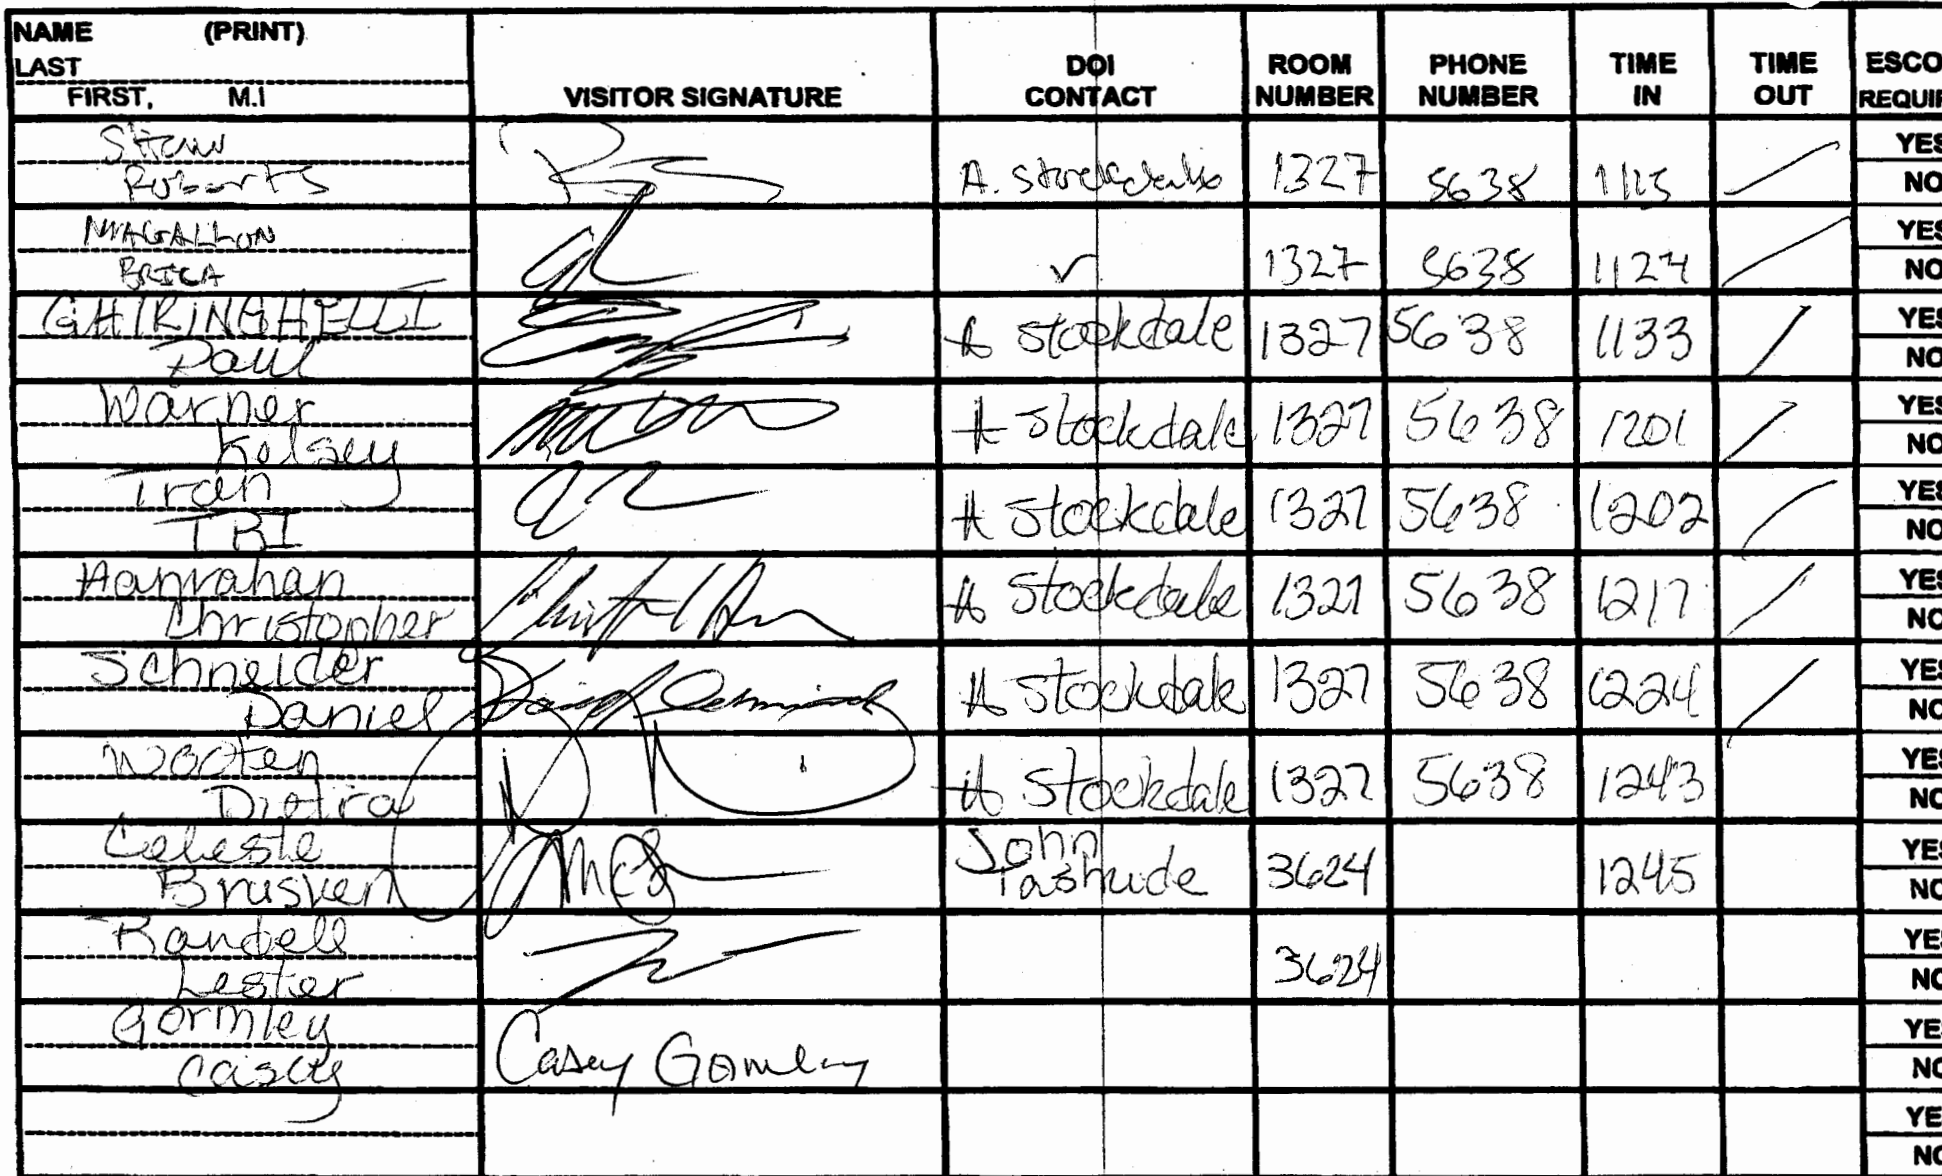 NAME (PRINT)
LAST
FIRST, M.I
VISITOR SIGNATURE
DOI
CONTACT
ROOM
NUMBER
PHONE
NUMBER
TIME
IN
TIME
OUT
ESCO
REQUIR
Shaw
Roberts
A. Stockdale 1327 5638 1115
YES
NO
MAGALLON
BRICA
1327 5638 1124
YES
NO
GHIRINGHELLI
Paul
A Stockdale 1327 5638 1133
YES
NO
Warner
Kelsey
A Stockdale 1327 5638 1201
YES
NO
Tran
TBI
A Stockdale 1327 5638 1202
YES
NO
Hanrahan
Christopher
A Stockdale 1327 5638 1217
YES
NO
Schneider
Daniel
A Stockdale 1327 5638 1224
YES
NO
Wooten
Dietra
A Stockdale 1327 5638 1243
YES
NO
Celeste
Brusven
John
3624 1245
YES
NO
Randell
Lester
3624
YES
NO
Gormley
Casey
Casey Gormley
YES
NO
YE
NO